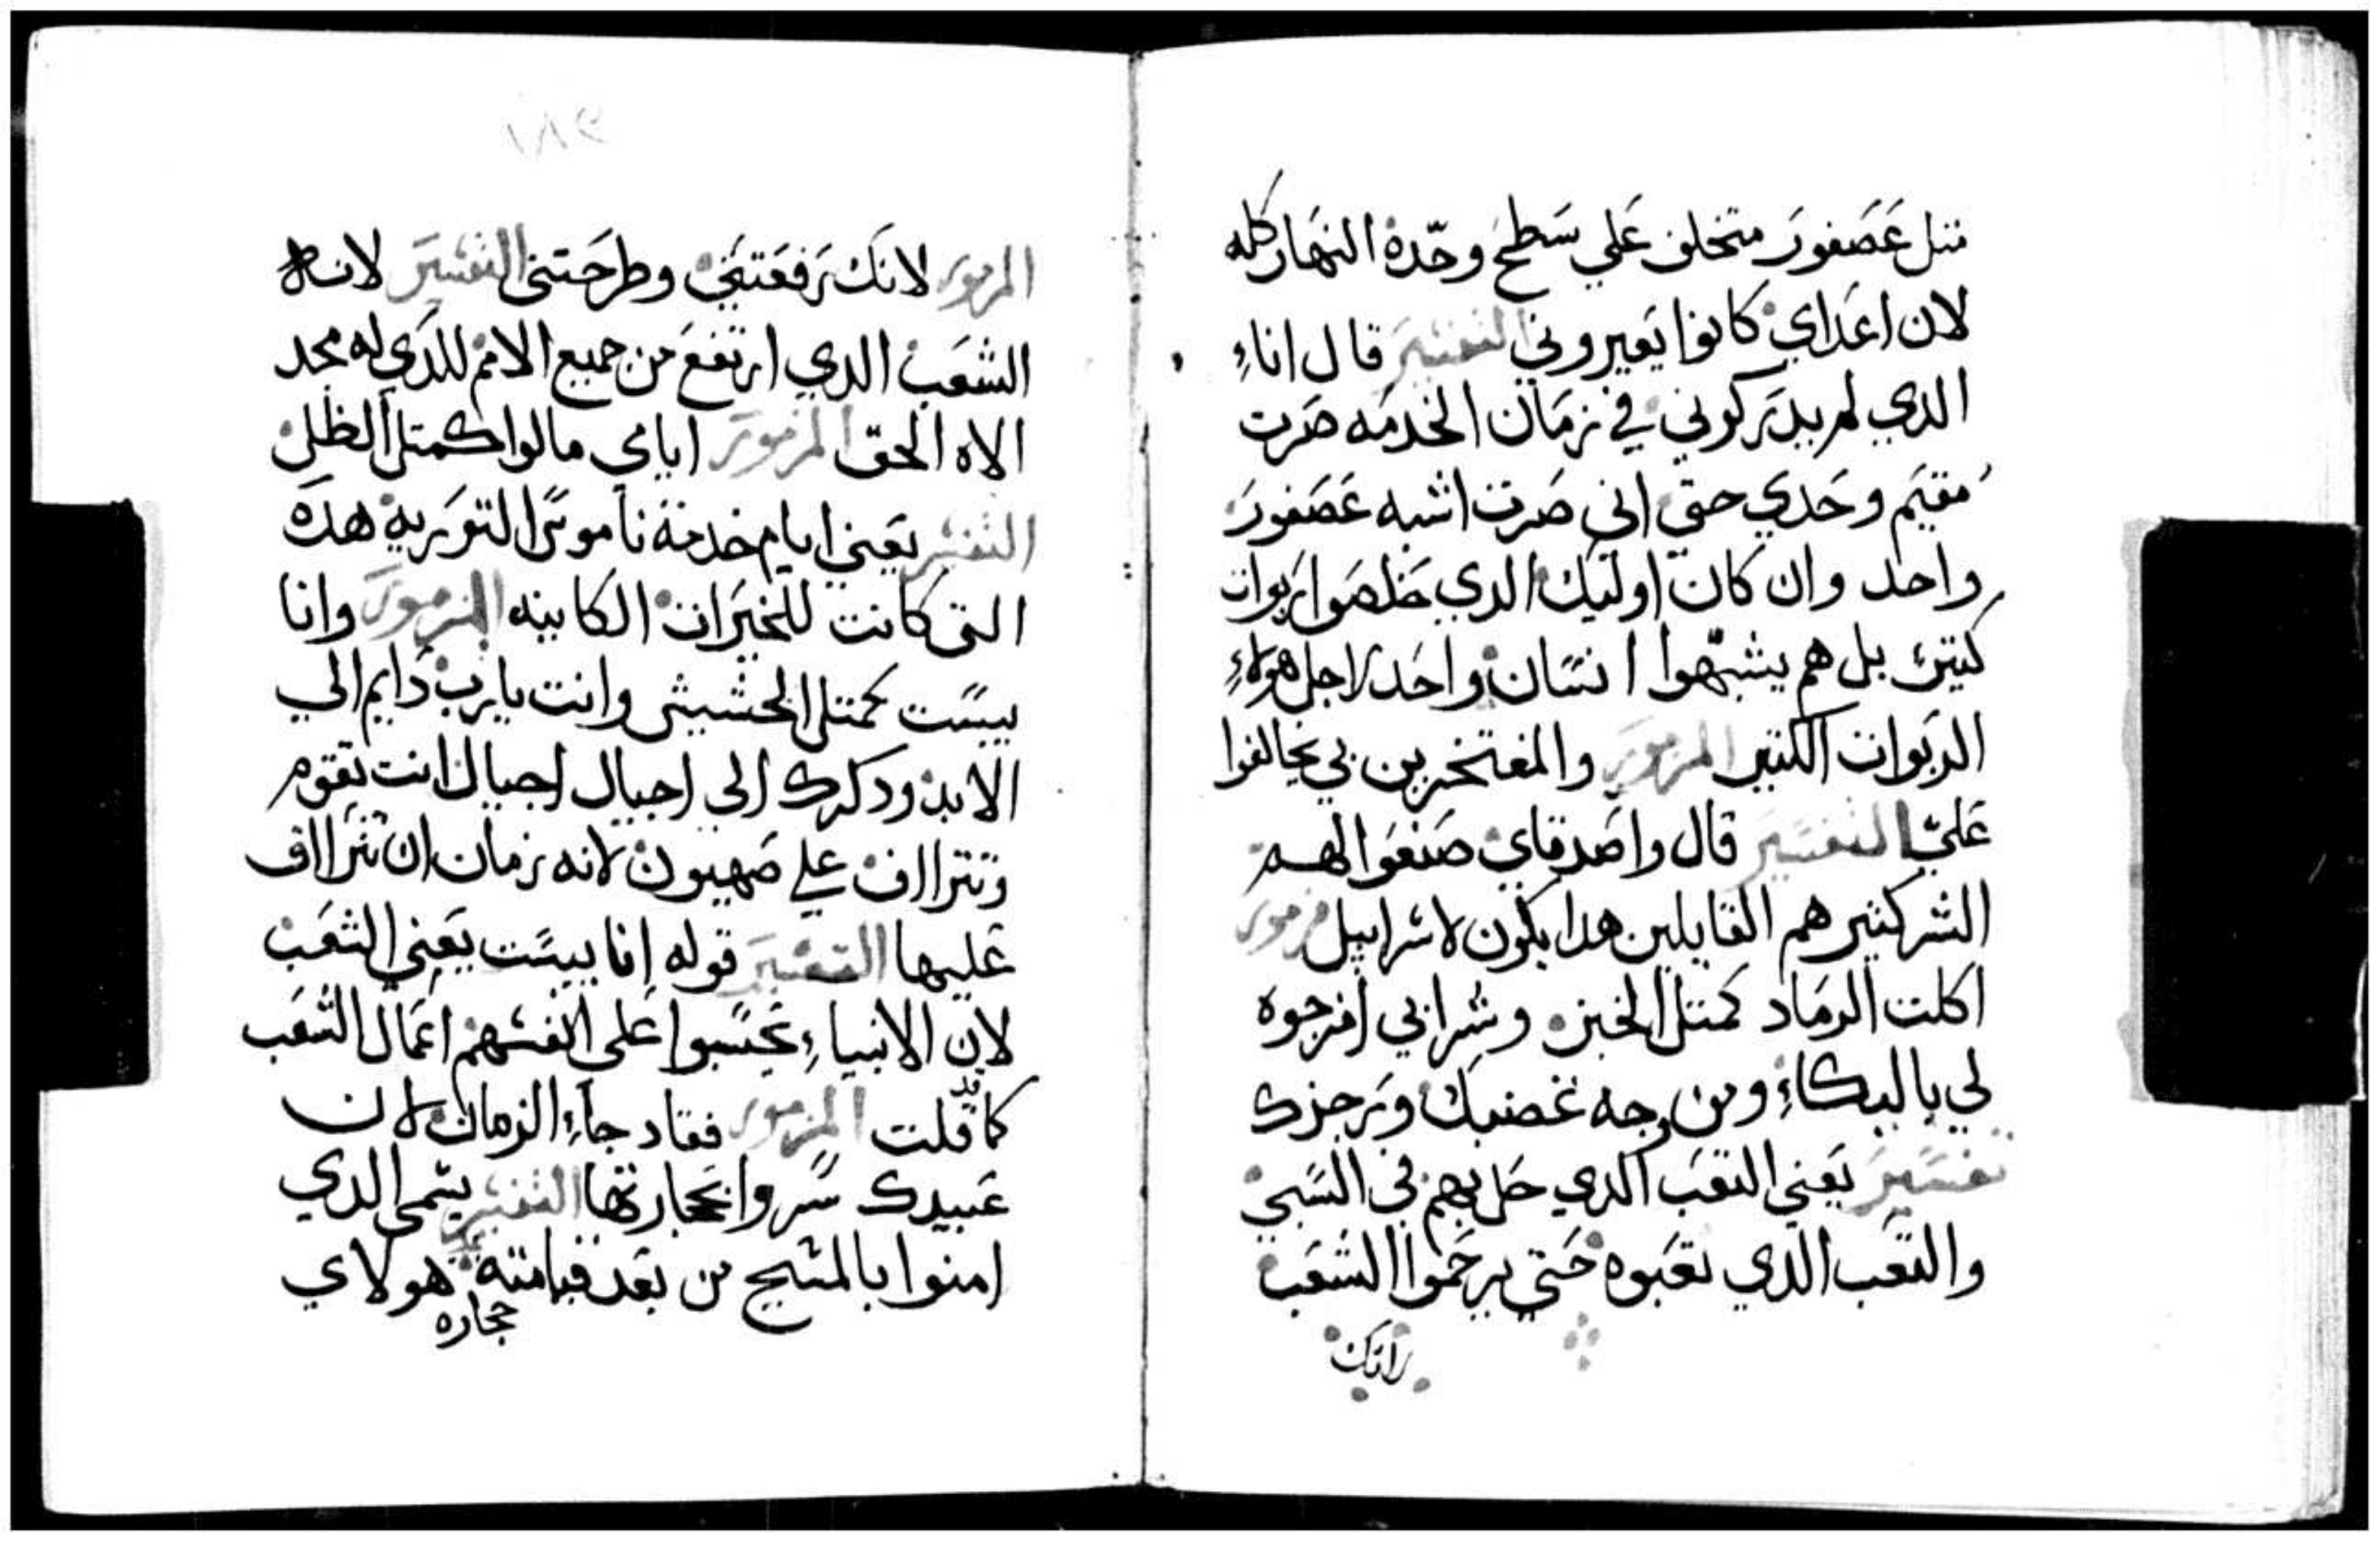 متل عَصَفورَ متخلف عَلي سَطح وحّدة النهَار كله
لان اعَداي كانوا يَعيروني التفسَيرَ قال اناءِ
الدي لم يدَركوني في زمَان الخدمَه صَرت
مُقيَم وحَدي حتي اني صَرت اشبه عَصَفورَ
واحد وان كان اوليك الدي خلصَوا ربوات
كتيرَ بل هم يشبّهوا انسَان واحَد لاجل هولاءِ
الربَوات الكتير المزمورَ والمفتخرين بي يحالفوا
عَليّ التفسَيرَ قال واصَدقاي صَنعَوا لهم
الشر كتير هم القايلين هدا يكون لاسَراييل مزمور
اكلت الرمَاد كمتل الخبز وشرابي امزجوه
لي بالبكاءِ ومن وجه غضبك ورَجزك
تفسَيرَ يَعني التعَب الدي حَل بهم في السَبي
والتعَب الدي تعَبوه حَتي يرحَموا الشعَب
لانك
المزمورَ لانَك رَفعَتني وطرحَتني التفسَيرَ لانه
الشعَب الدي ارتفعَ من جميع الامم للدَي له مجد
الاه الحق المزمورَ ايامي مالوا كمتل الظل
التفسير يعَني ايام خدمة ناموسَ التورَية هدَه
التي كانت للخيَرات الكاينه المزمورَ وانا
يبسَت كمتل الحشيش وانت يا رب دَايم الي
الابد ودكرك الي اجيال اجيال انت تقوم
وتتراف علي صَهيون لانه زمان ان تتراف
عَليها التفسَيرَ قوله انا يبسَت يعَني الشعَب
لان الانبياءِ يحَسَبوا عَلي انفسَهم اعمَال الشعَب
كما قلت المزمور فقد جاءِ الزمان لان
عَبيدك سَروا بحجارتها التفسير يسَمي الدي
امنوا بالمسَيح من بعَد قيامته هولاي
حجاره